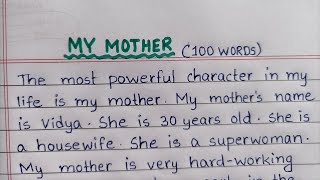 MY MOTHER (100 WORDS)
The most powerful character in my
life is my mother. My mother's name
is Vidya. She is 30 years old. She is
a housewife. She is a superwoman.
My mother is very hard-working
in the